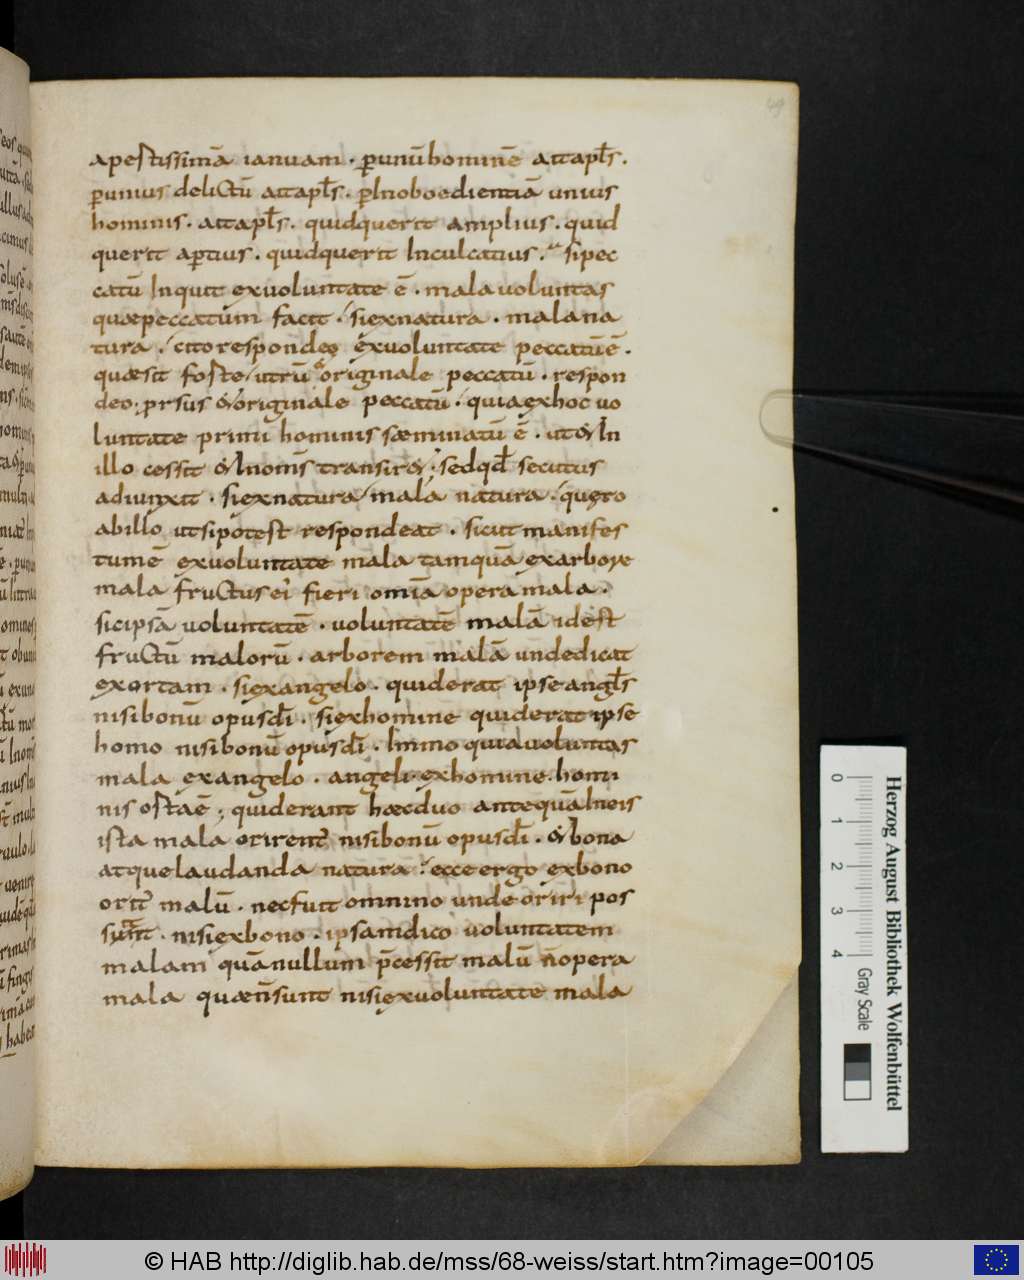 49
apestissimā ianuam · ꝑunūhominē aitapłs ·
ꝑunius delictū aitapłs · ꝑInoboedientiā unius
hominis · aitapłs · quidquerit amplius · quid
querit aꝑtius · quidquerit Inculcatius · sipec
catū Inquit exuoluntate ē · mala uoluntas
quaepeccatum facit · siexnatura · malana
tura · citorespondeo exuoluntate peccatūē ·
quaesit foste utrū originale peccatū · respon
deo; prsus & originale peccatū · quiaexhoc uo
luntate primi hominis saeminatū ē · ut&In
illo cessit &Inomīs transir& · sedqđ secutus
adiunxit · siexnatura mala natura · quęro
abillo utsipotest respondeat · sicut manifes
tumē exuoluntate mala tamquā exarbore
mala fructus ei fieri omīa opera mala ·
sicipsā uoluntatē · uoluntatē malā idest
fructū malorū · arborem malā undedicat
exortam · siexangelo · quiderat ipse angłs
nisibonū opusdī · siexhomine quiderat ipse
homo nisibonū opusdī · Immo quiauoluntas
mala exangelo · angeli · exhomine · homi
nis ostaē ; quiderant haecduo antequāIneis
ista mala orirent nisibonū opusdī · & bona
atquelaudanda natura · ecce ergo exbono
orit malū · necfuit omnino unde oriri pos
sunt · nisiexbono · ipsamdico uoluntatem
malam quānullum p̄cessit malū n̄opera
mala quaen̄sunt nisiexuoluntate mala
0 1 2 3 4
Herzog August Bibliothek Wolfenbüttel
Gray Scale
© HAB http://diglib.hab.de/mss/68-weiss/start.htm?image=00105